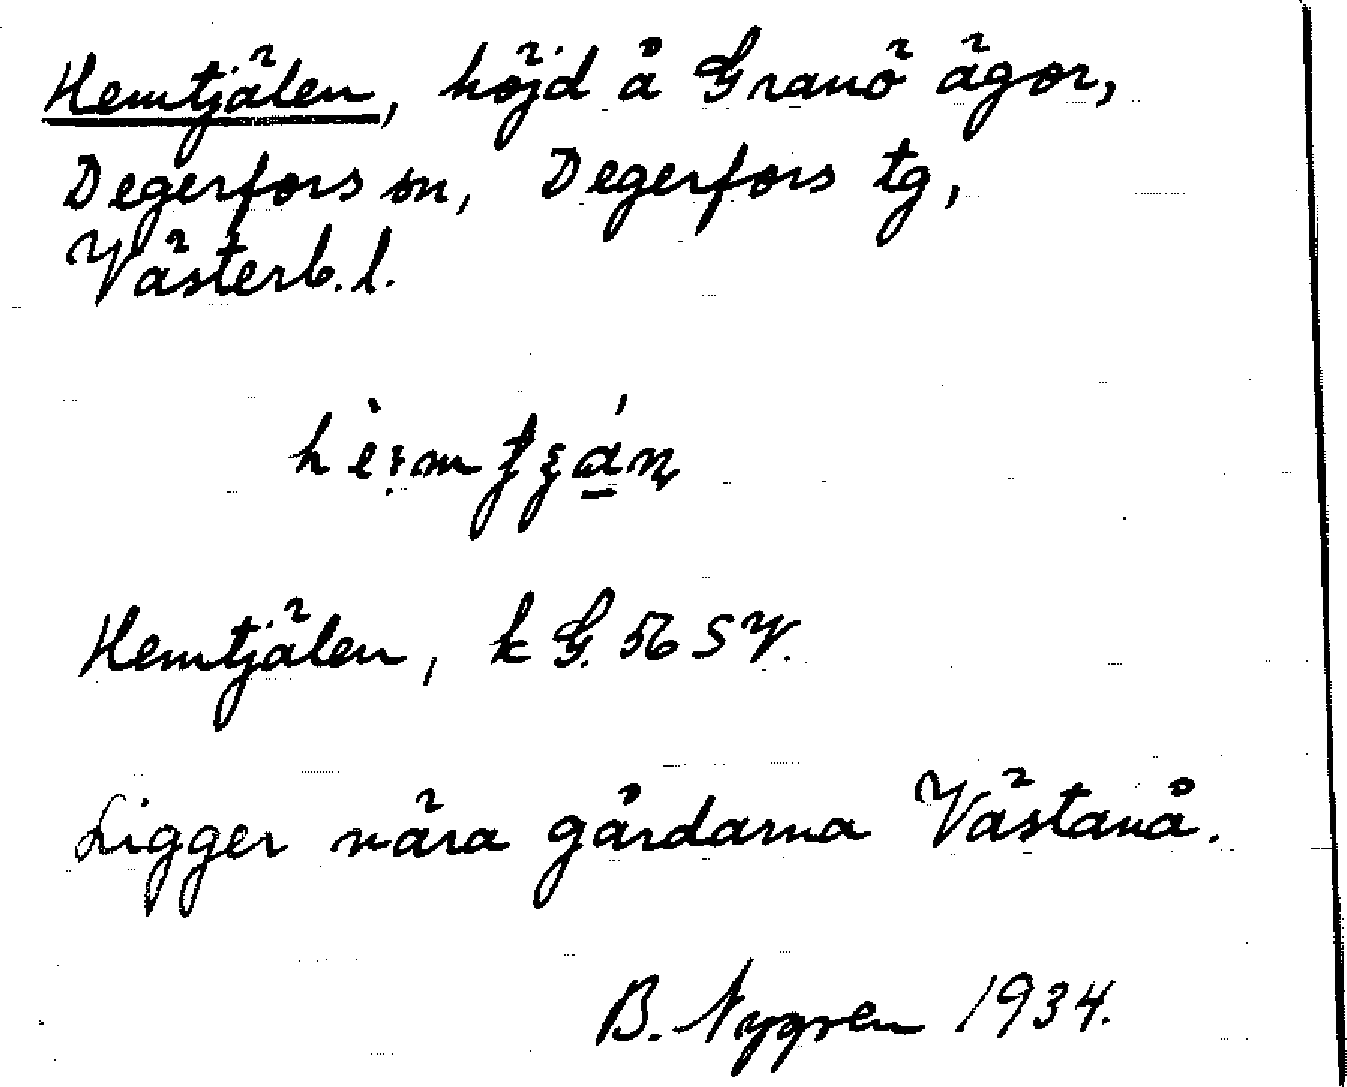 Hemtjälen, höjd å Granö ägor,
Degerfors sn, Degerfors tg,
Västerb. l.
Hemtjälen, k G. 56 SV.
Ligger nära gårdarna Västanå.
B. Nygren 1934.